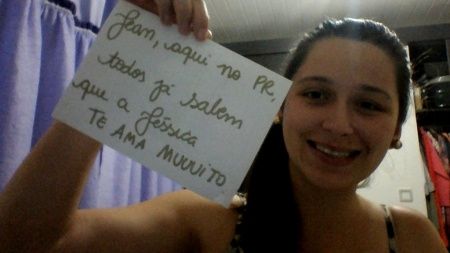 Jean, aqui no PR,
todos já sabem
que a Jéssica
TE AMA MUUUITO